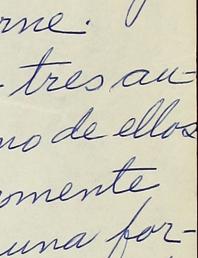 rne.
tres au-
no de ellos
omente
una for-